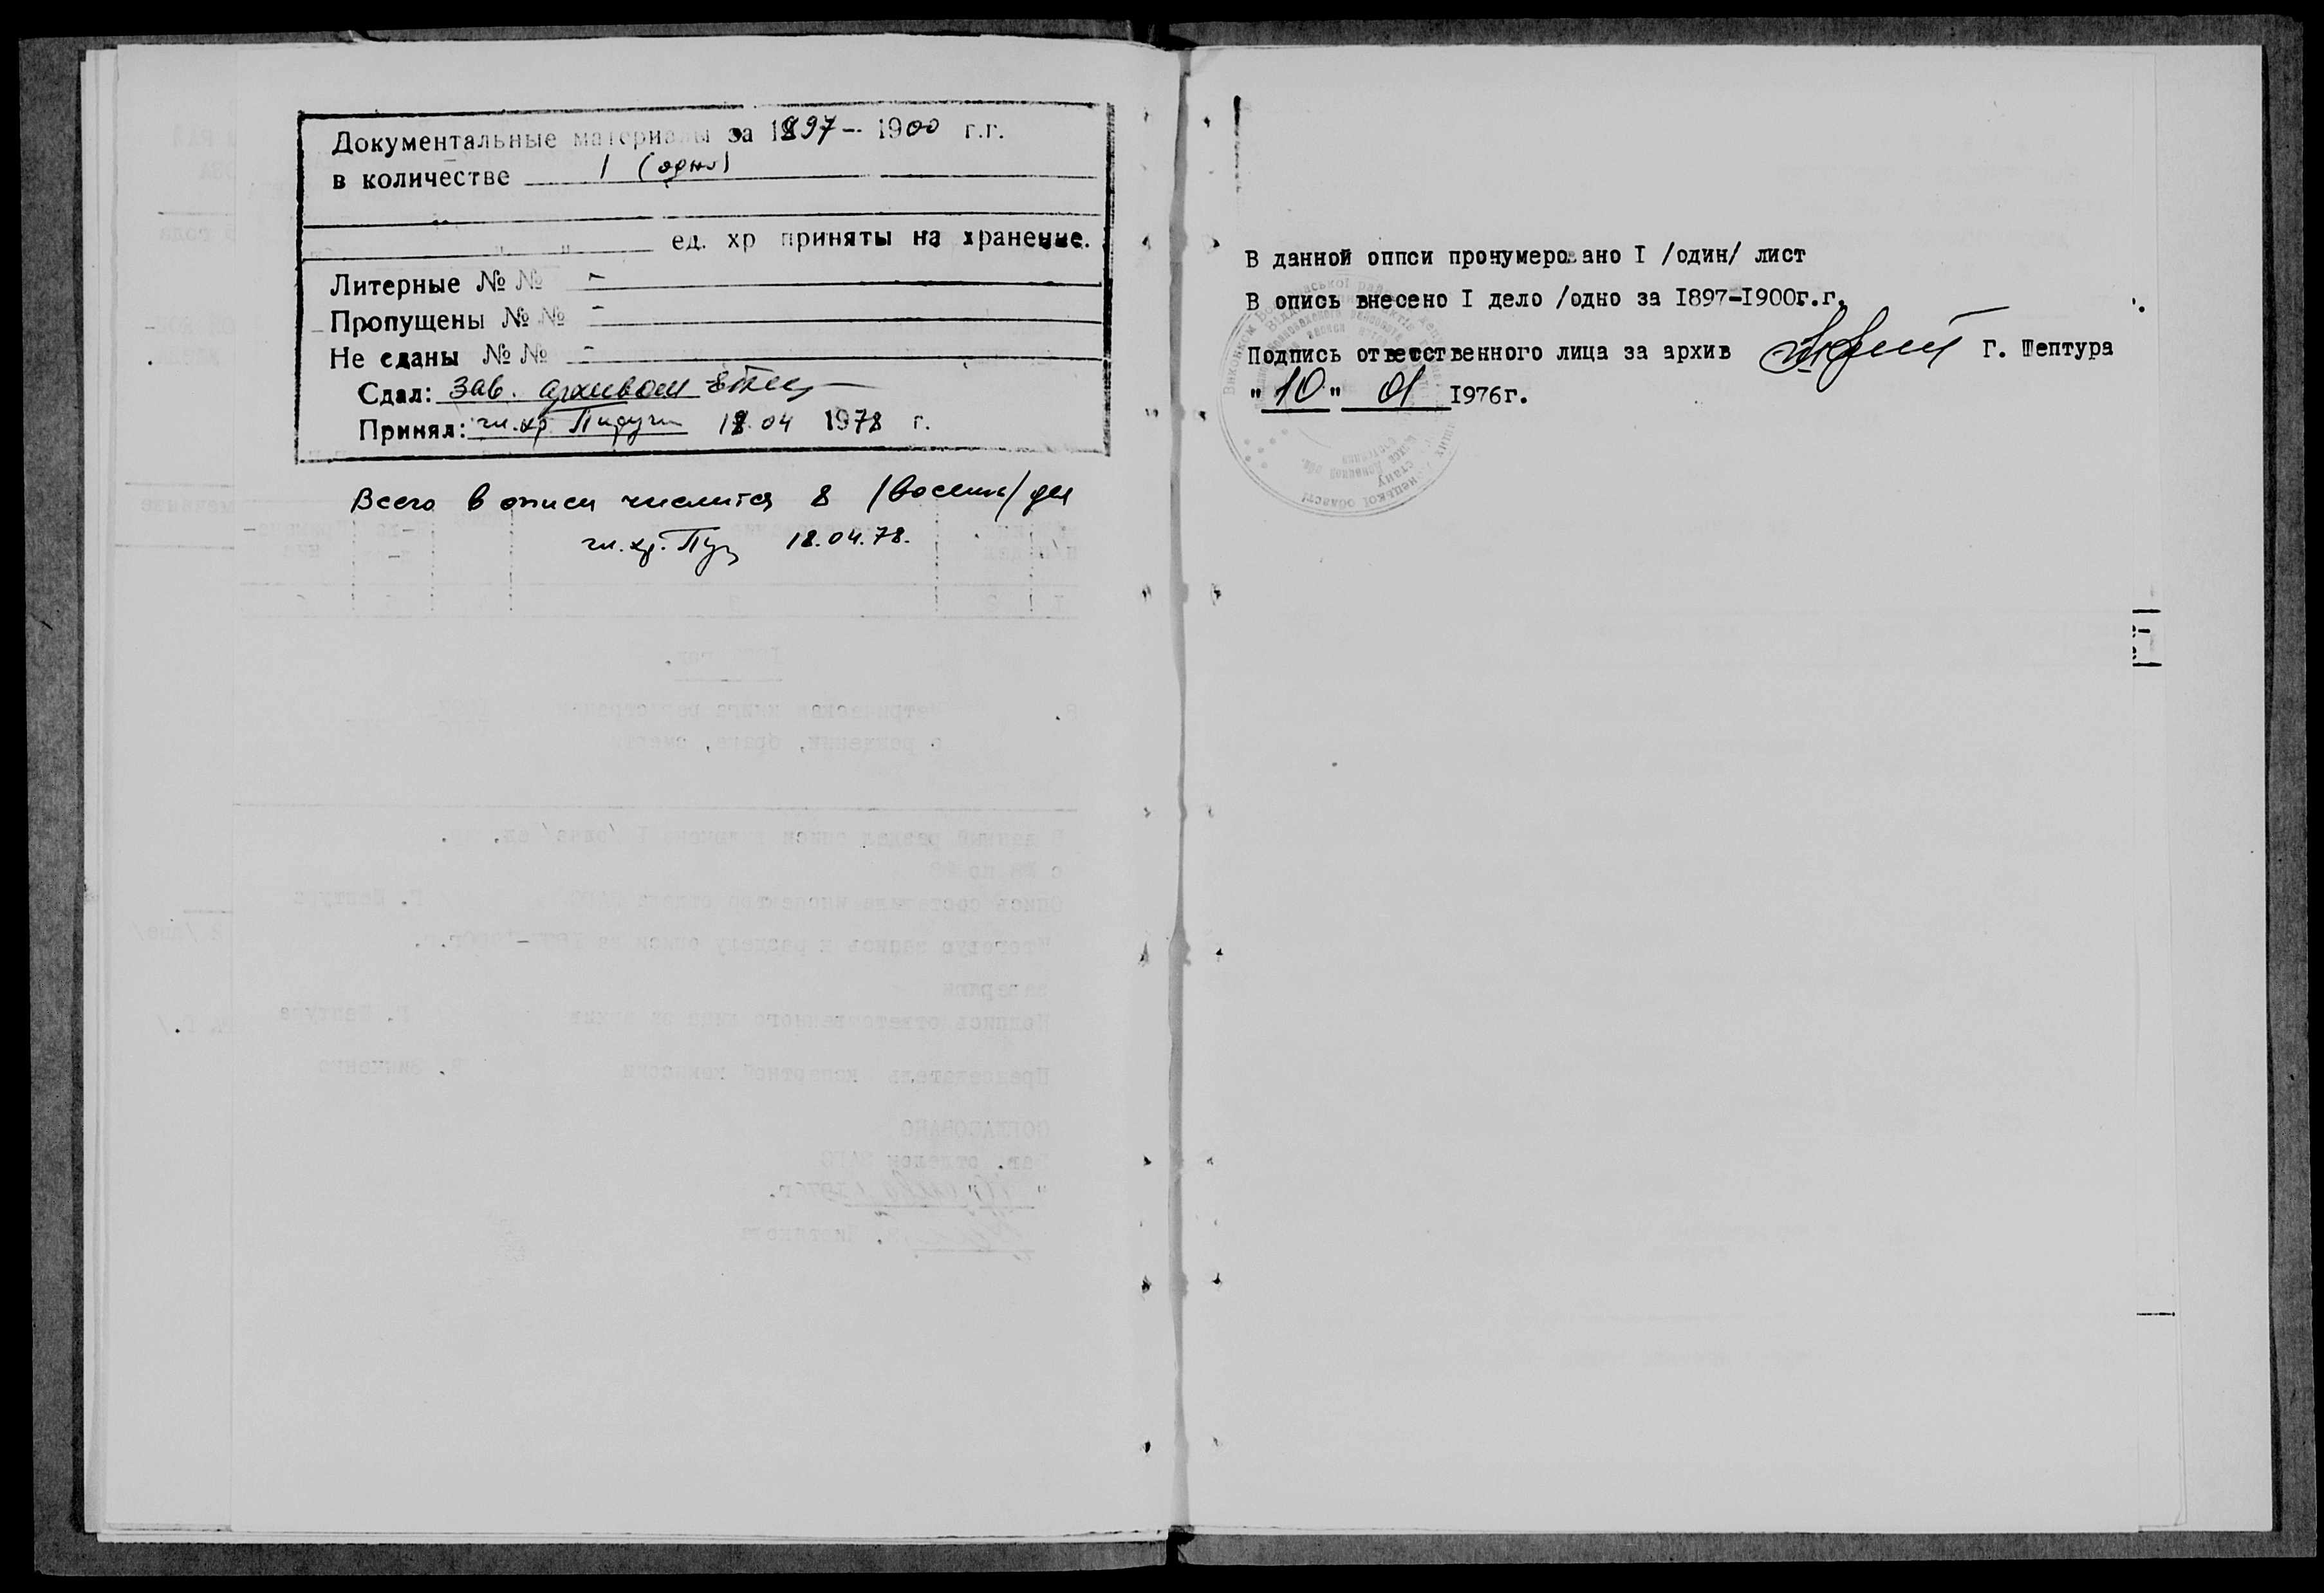 Документальные материалы за 1897 - 1900 г.г.
в количестве 1 (одно)
ед. хр приняты на хранение.
Литерные № № -
Пропущены № № -
Не сданы № № -
Сдал: Зав. архивом
Принял: гл. хр. 18.04 1978 г.
Всего в описи числится 8 /восемь/ дел
гл. хр. 18.04.78.
В данной оппси пронумеровано I /один/ лист
В опись внесено I дело /одно за I897-I900г.г.
Подпись ответственного лица за архив Г. Шептура
"10" 01 I976г.